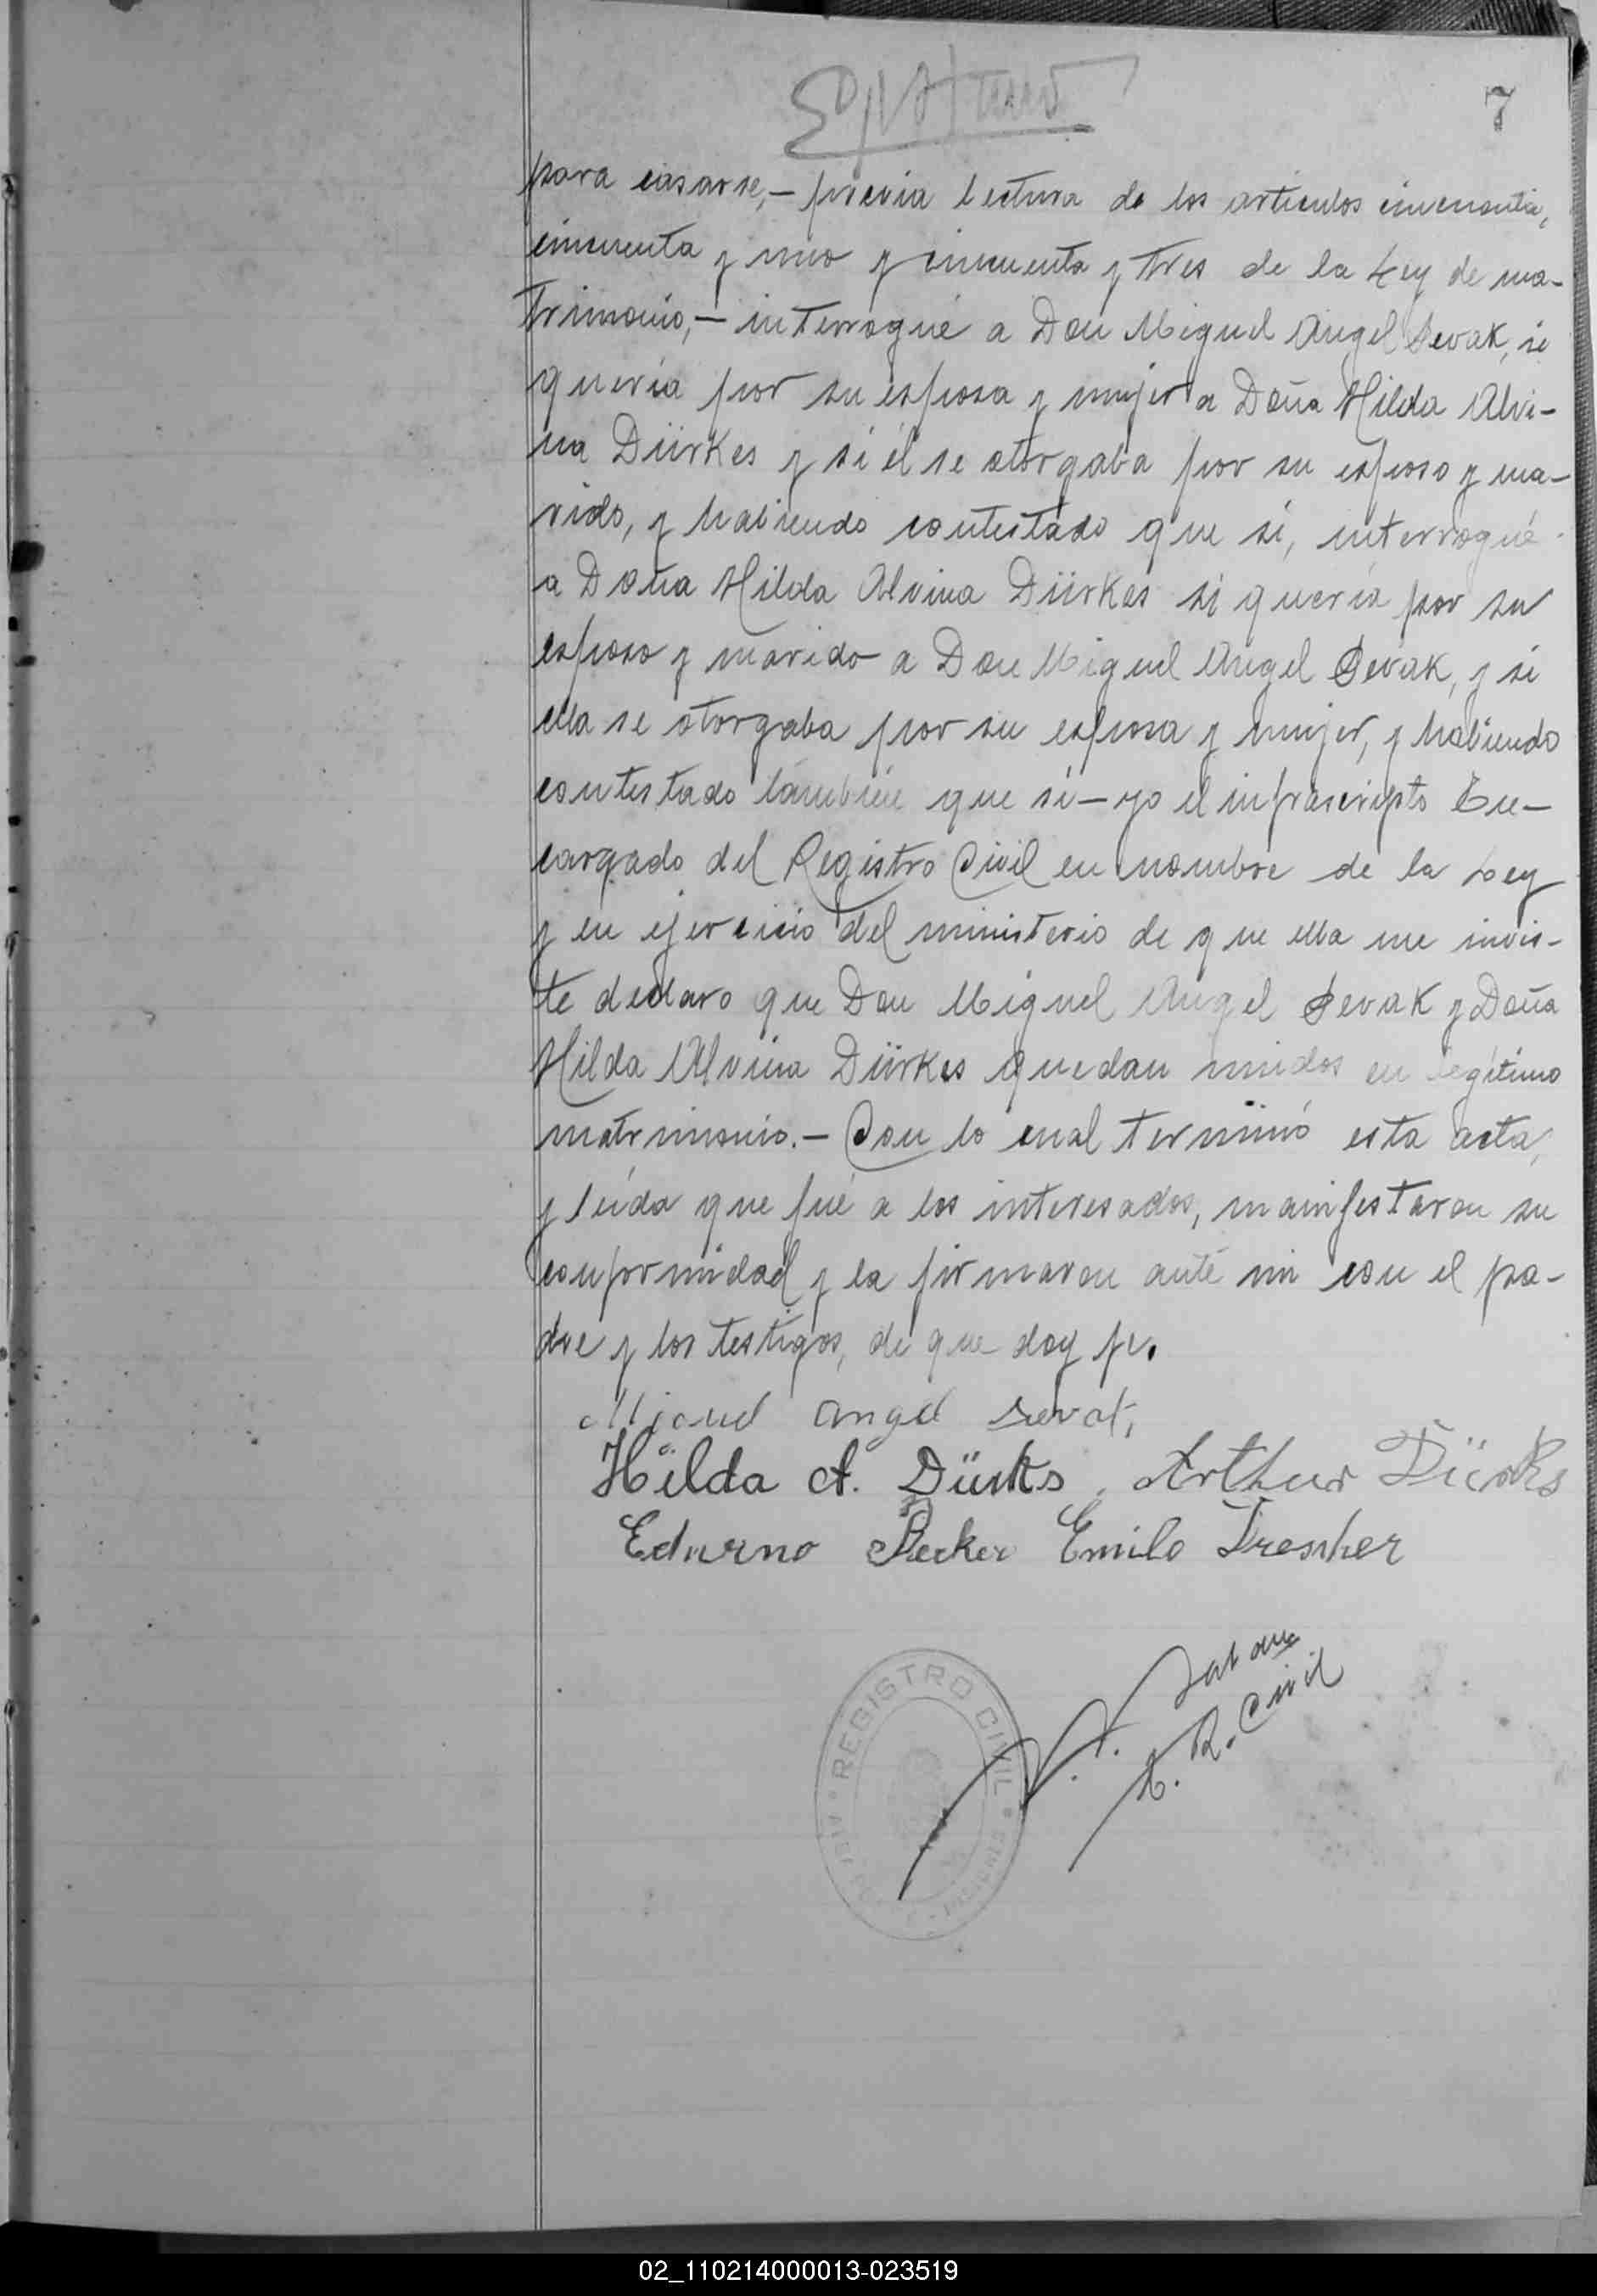 7
para casarse,- previa lectura de los artículos cincuenta,
cincuenta y uno y cincuenta y tres de la Ley de ma-
trimonio,- interrogué a Don Miguel Angel Sevak, si
quería por su esposa y mujer a Doña Hilda Alvi-
na Dürkes y si él se otorgaba por su esposo y ma-
rido, y habiendo contestado que sí, interrogué
a Doña Hilda Alvina Dürkes si quería por su
esposo y marido a Don Miguel Angel Sevak, y si
ella se otorgaba por su esposa y mujer, y habiendo
contestado también que sí- yo el infrascripto En-
cargado del Registro Civil en nombre de la Ley
y en ejercicio del ministerio de que ella me invis-
te declaro que Don Miguel Angel Sevak y Doña
Hilda Alvina Dürkes quedan unidos en legítimo
matrimonio.- Con lo cual terminó esta acta,
y leída que fué a los interesados, manifestaron su
conformidad y la firmaron ante mi con el pa-
dre y los testigos, de que doy fe.
Miguel Angel Sevak
Hilda A. Dürks Arthur Dürks
Becker Emilo Drescher
E. R. Civil
REGISTRO CIVIL
02_110214000013-023519